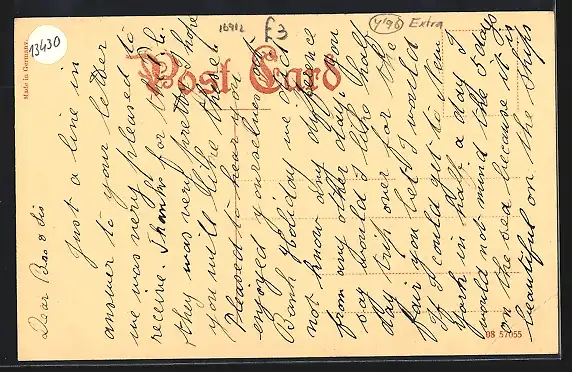 13430
16912
£3
Y96
Extra
Made in Germany.
Post Card
08 57055
Dear Bro & Sis
Just a line in
answer to your letter
we was very pleased to
receive. Thanks for the P.C.
they was very pretty I hope
you will like these
Pleased to hear you
enjoyed yourselves at
Bank Holiday we did
not know any difference
from any other day. You
say would I like half
day trip over for the
fair you bet I would
If I could get to New
York in half a day I
would not mind the 5 days
on the sea because it is
beautiful on the ships